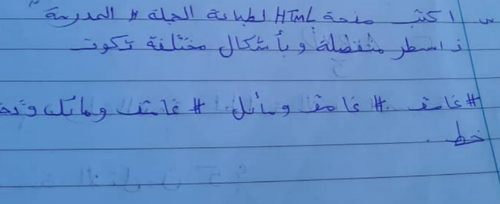 س/ اكتب صفحة HTML لطباعة الجملة " المدرسة
ذا سطر منفصلة و بأشكال مختلفة تكون
# غامق # غامق و مائل # غامق و مائل و تحته
خط.